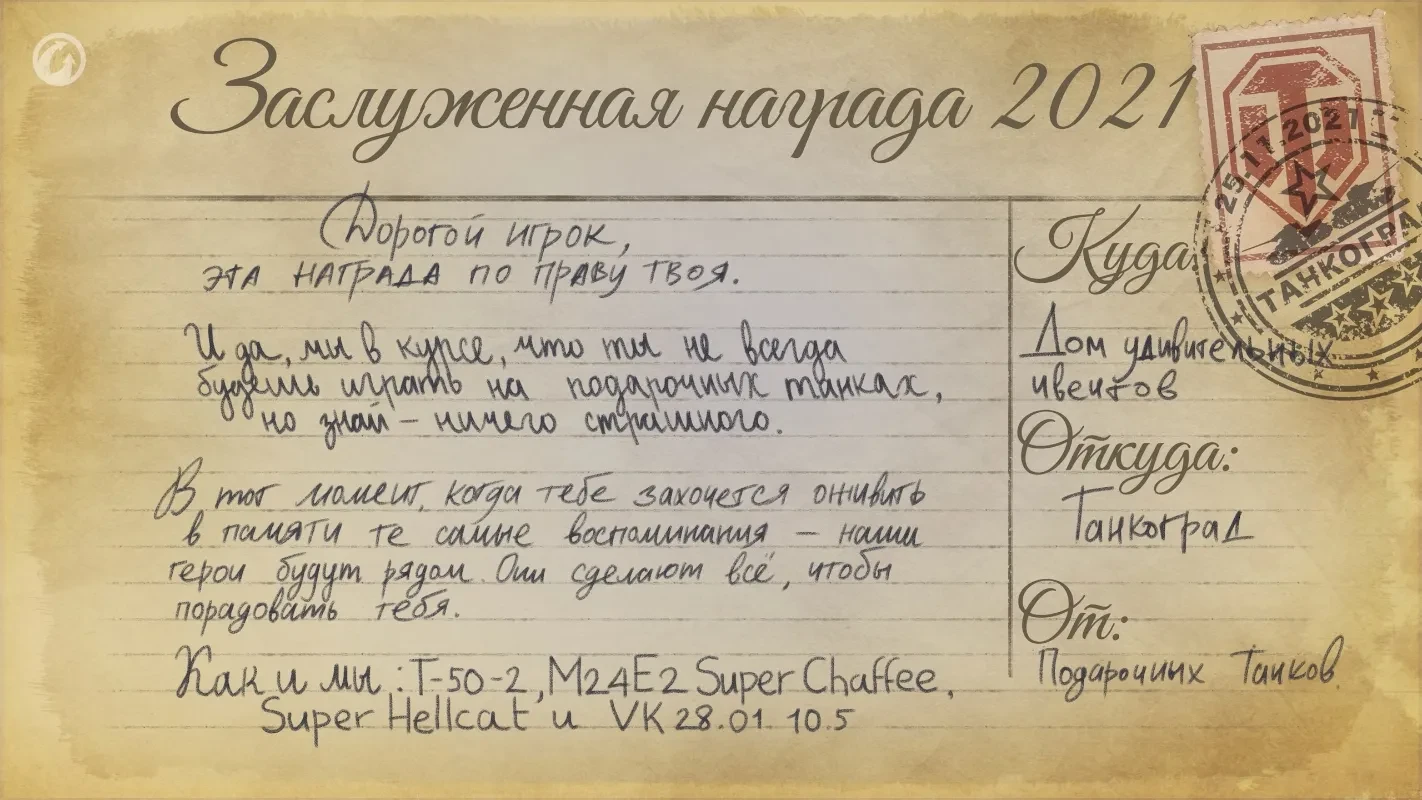 Заслуженная награда 2021
25.11.2021
Дорогой игрок,
эта награда по праву твоя.
И да, мы в курсе, что ты не всегда
будешь играть на подарочных танках,
но знай – ничего страшного.
В тот момент, когда тебе захочется оживить
в памяти те самые воспоминания – наши
герои будут рядом. Они сделают всё, чтобы
порадовать тебя.
Как и мы: Т-50-2, M24E2 Super Chaffee,
Super Hellcat и VK 28.01. 10.5
Куда:
Дом удивительных
ивентов
Откуда:
Танкоград
От:
Подарочных Танков.